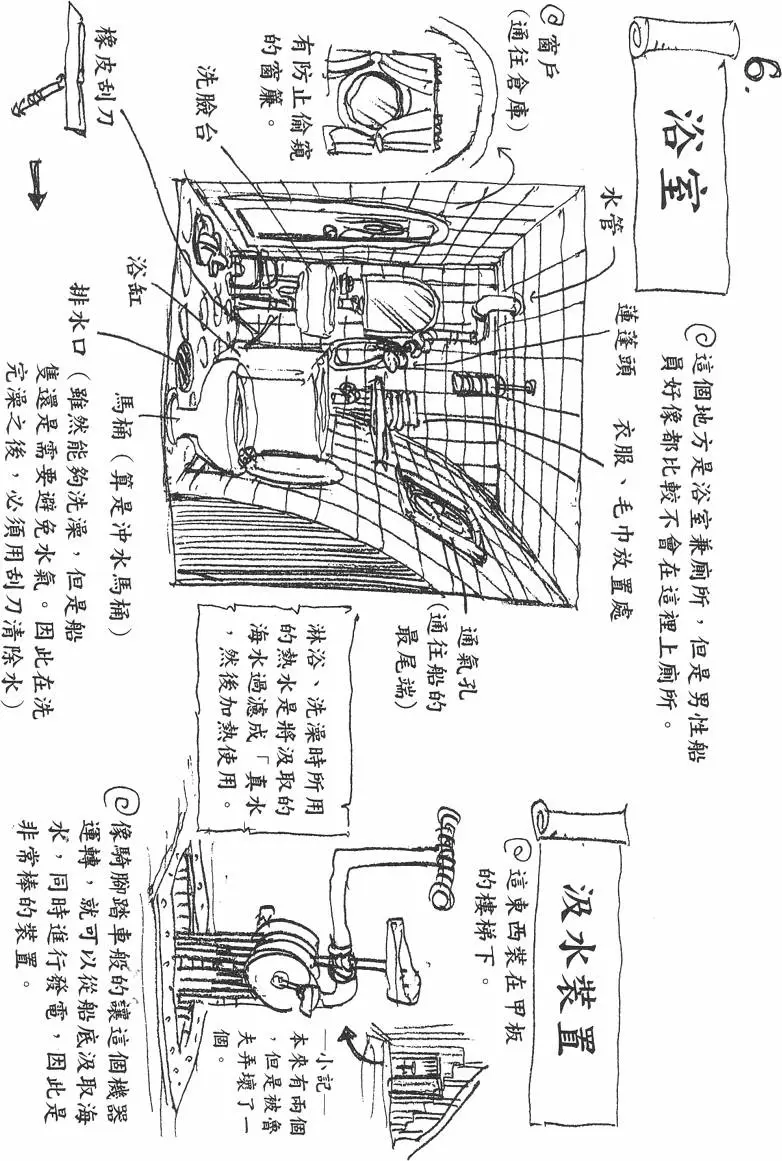 6.
浴室
這個地方是浴室兼廁所，但是男性船
員好像都比較不會在這裡上廁所。
窗戶
（通往倉庫）
有防止偷窺
的窗簾。
水管
蓮蓬頭
衣服、毛巾放置處
洗臉台
橡皮刮刀
浴缸
排水口（雖然能夠洗澡，但是船
隻還是需要避免水氣。因此在洗
完澡之後，必須用刮刀清除水）
馬桶（算是沖水馬桶）
通氣孔
（通往船的
最尾端）
淋浴、洗澡時所用
的熱水是將汲取的
海水過濾成「真水
，然後加熱使用。
汲水裝置
這東西裝在甲板
的樓梯下。
像騎腳踏車般的讓這個機器
運轉，就可以從船底汲取海
水，同時進行發電，因此是
非常棒的裝置。
—小記—
本來有兩個
，但是被魯
夫弄壞了一
個。